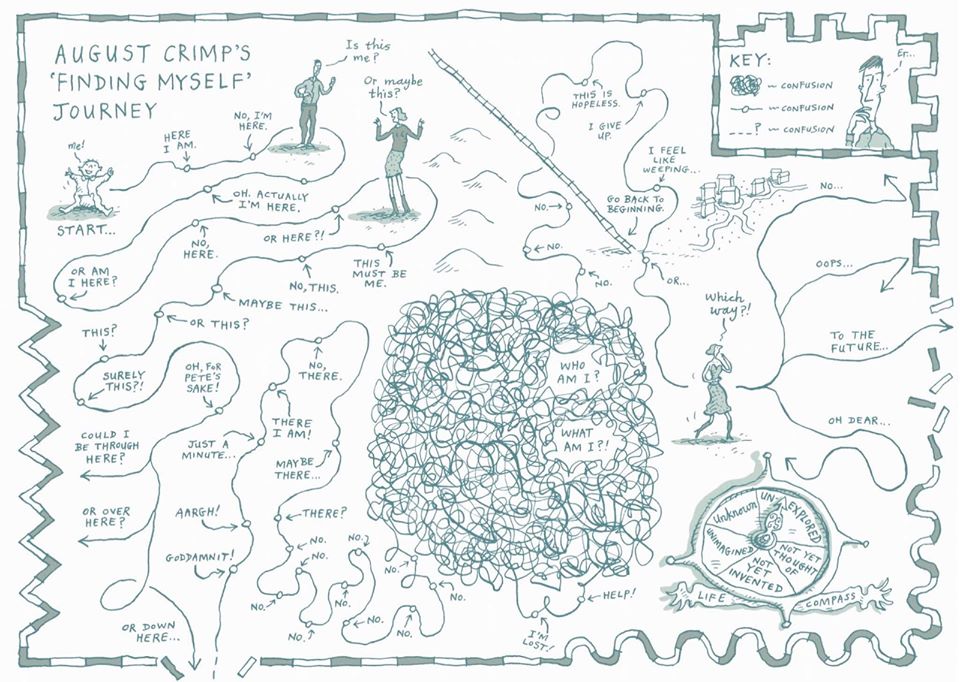 AUGUST CRIMP'S
'FINDING MYSELF'
JOURNEY
KEY:
~ CONFUSION
~ CONFUSION
? ~ CONFUSION
Er...
me!
START...
HERE
I AM.
NO, I'M
HERE.
Is this
me?
Or maybe
this?
OH. ACTUALLY
I'M HERE.
OR HERE?!
NO,
HERE.
OR AM
I HERE?
THIS
MUST BE
ME.
NO, THIS.
MAYBE THIS...
OR THIS?
THIS?
SURELY
THIS?!
OH, FOR
PETE'S
SAKE!
COULD I
BE THROUGH
HERE?
OR OVER
HERE?
OR DOWN
HERE...
JUST A
MINUTE...
AARGH!
GODDAMNIT!
THERE
I AM!
NO,
THERE.
MAYBE
THERE...
THERE?
NO.
NO.
NO.
NO.
NO.
NO.
NO.
NO.
NO.
NO.
WHO
AM I?
WHAT
AM I?!
I'M
LOST!
HELP!
NO.
NO.
NO.
THIS IS
HOPELESS.
I GIVE
UP.
I FEEL
LIKE
WEEPING...
GO BACK TO
BEGINNING.
OR...
Which
way?!
NO...
OOPS...
TO THE
FUTURE...
OH DEAR...
UNEXPLORED
NOT YET
THOUGHT
OF
NOT
YET
INVENTED
UNIMAGINED
Unknown
LIFE
COMPASS